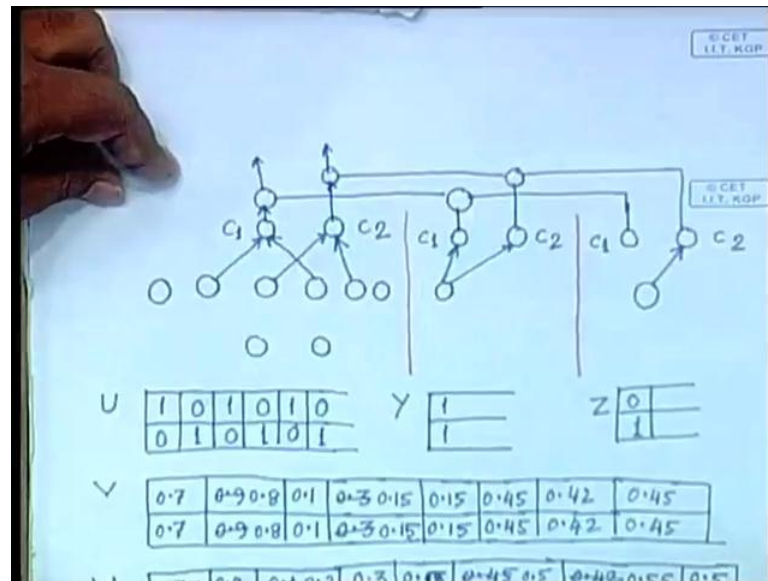 © CET
I.I.T. KGP
© CET
I.I.T. KGP
C1 C2 C1 C2 C1 C2
U 1 0 1 0 1 0 Y 1 Z 0
0 1 0 1 0 1 1 1
V 0.7 0.9 0.8 0.1 0.3 0.15 0.15 0.45 0.42 0.45
0.7 0.9 0.8 0.1 0.3 0.15 0.15 0.45 0.42 0.45